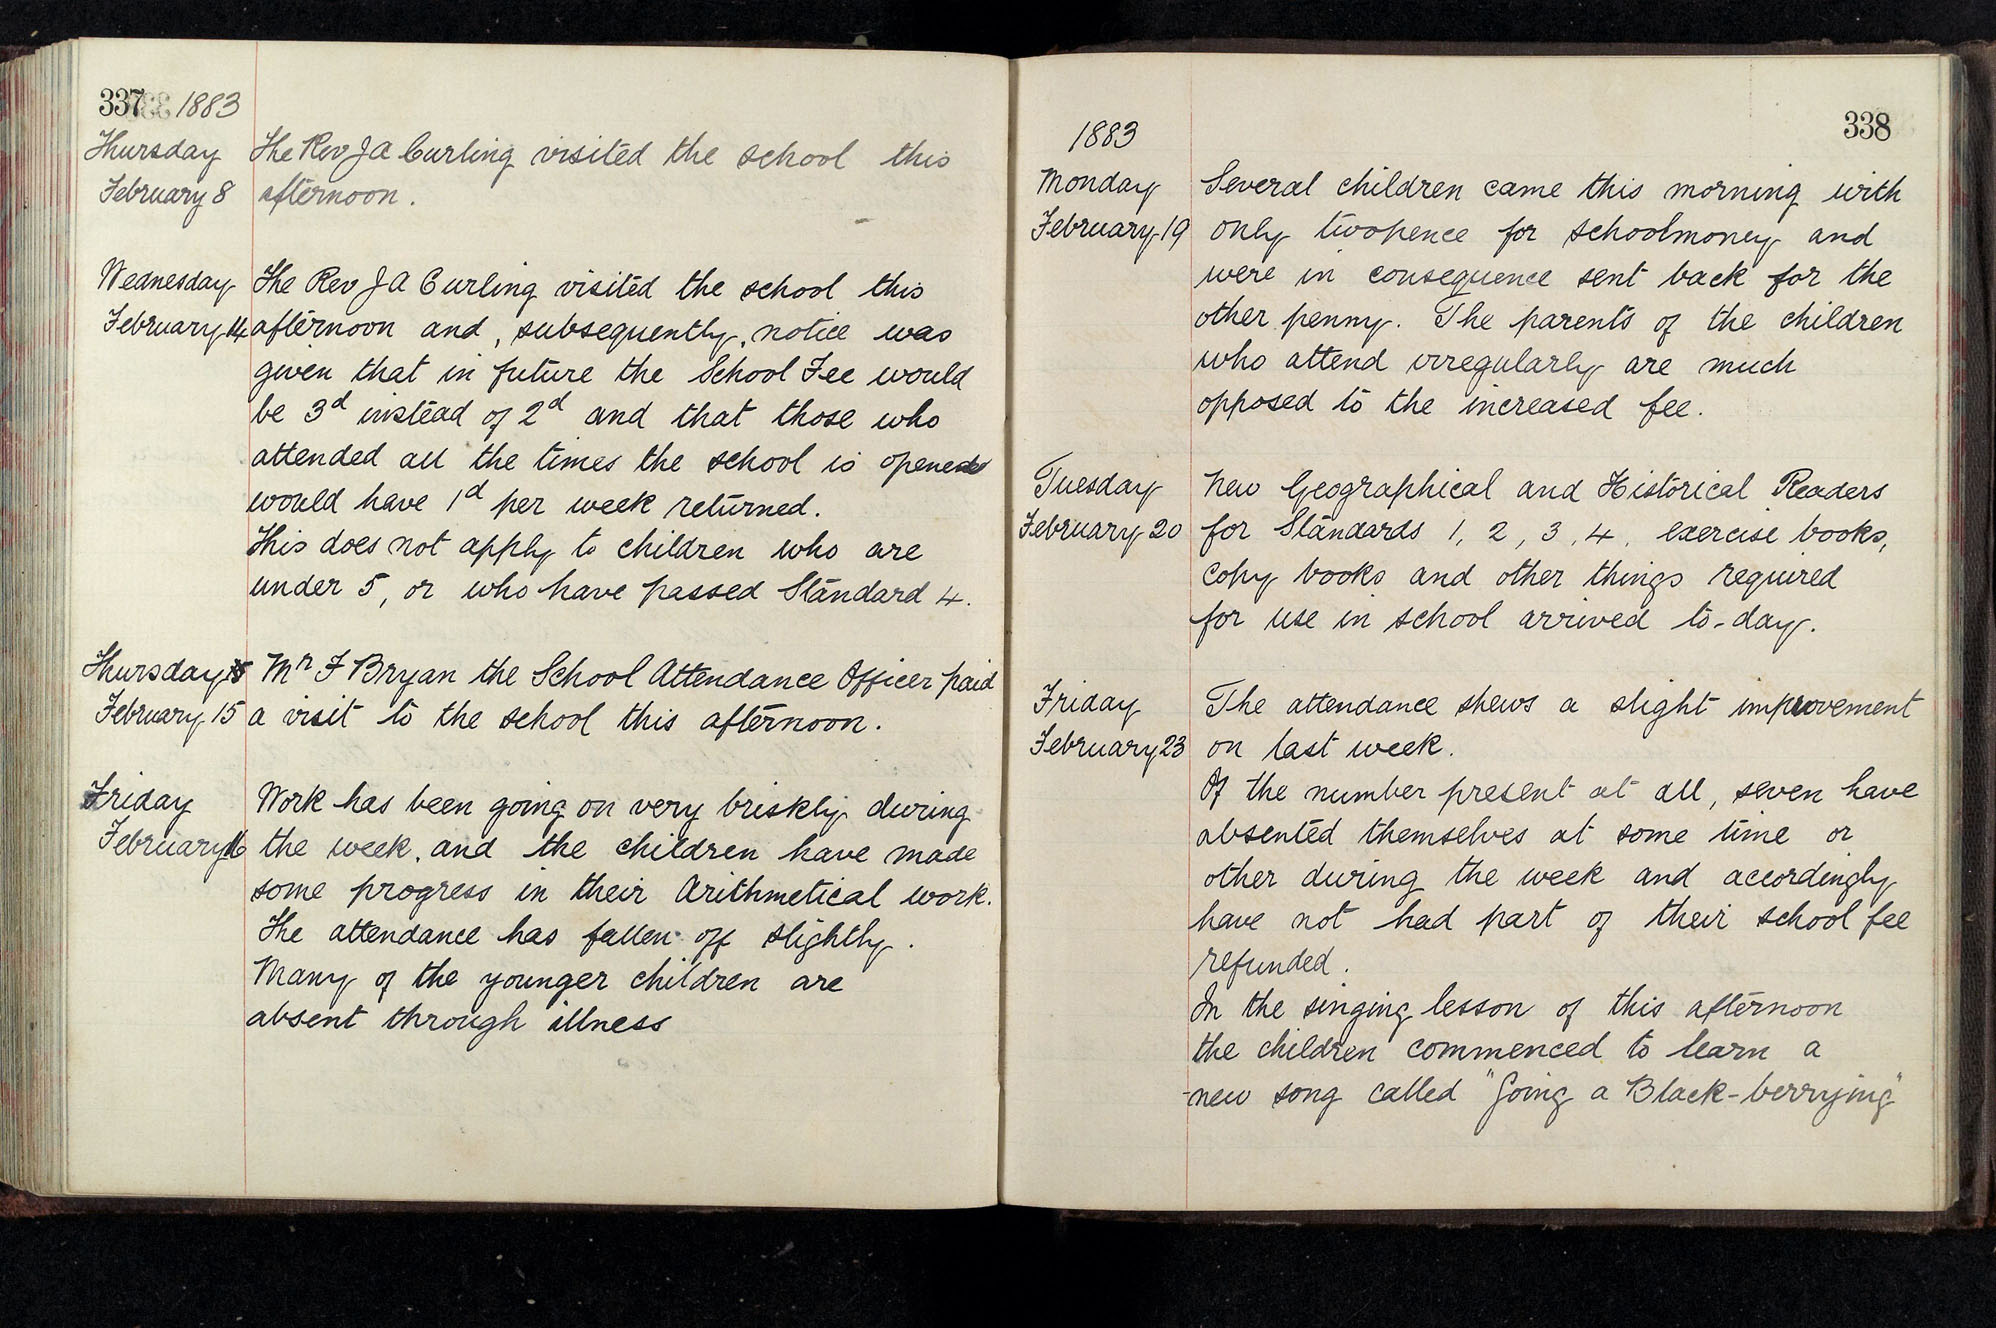 337 1883
Thursday The Rev J A Curling visited the school this
February 8 afternoon.
Wednesday The Rev J A Curling visited the school this
February 14 afternoon and, subsequently, notice was
given that in future the School Fee would
be 3d instead of 2d and that those who
attended all the times the school is opened
would have 1d per week returned.
This does not apply to children who are
under 5, or who have passed Standard 4.
Thursday Mr F Bryan the School Attendance Officer paid
February 15 a visit to the school this afternoon.
Friday Work has been going on very briskly during
February 16 the week, and the children have made
some progress in their Arithmetical work.
The attendance has fallen off slightly.
Many of the younger children are
absent through illness
338
1883
Monday Several children came this morning with
February 19 only twopence for schoolmoney and
were in consequence sent back for the
other penny. The parents of the children
who attend irregularly are much
opposed to the increased fee.
Tuesday New Geographical and Historical Readers
February 20 for Standards 1, 2, 3, 4, exercise books,
copy books and other things required
for use in school arrived to-day.
Friday The attendance shews a slight improvement
February 23 on last week.
Of the number present at all, seven have
absented themselves at some time or
other during the week and accordingly
have not had part of their school fee
refunded.
In the singing lesson of this afternoon
the children commenced to learn a
new song called "Going a Black-berrying"